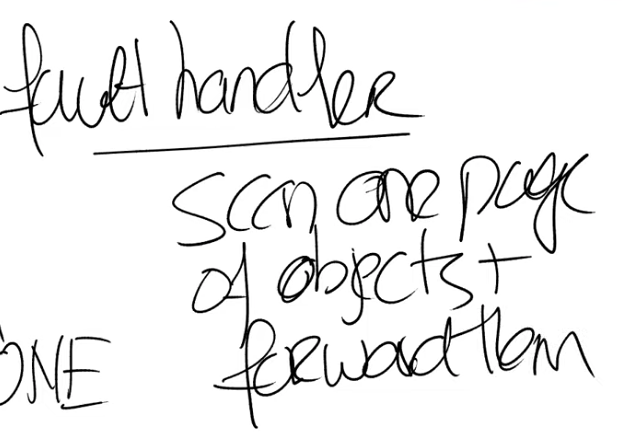 fault handler
scan one page
of objects +
forward them
ONE